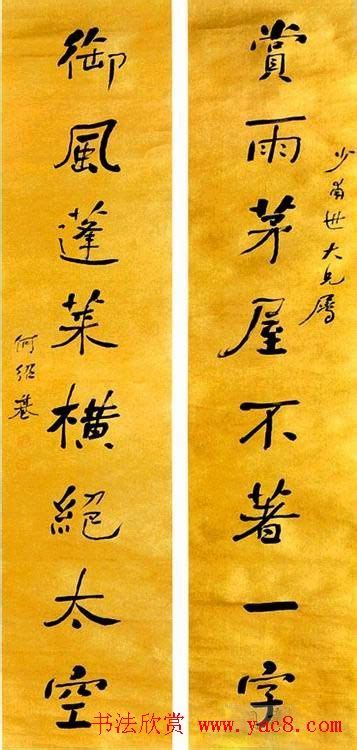 賞雨茅屋不著一字
少甫世大兄屬
御風蓬萊橫絕太空
何紹基
书法欣赏 www.yac8.com